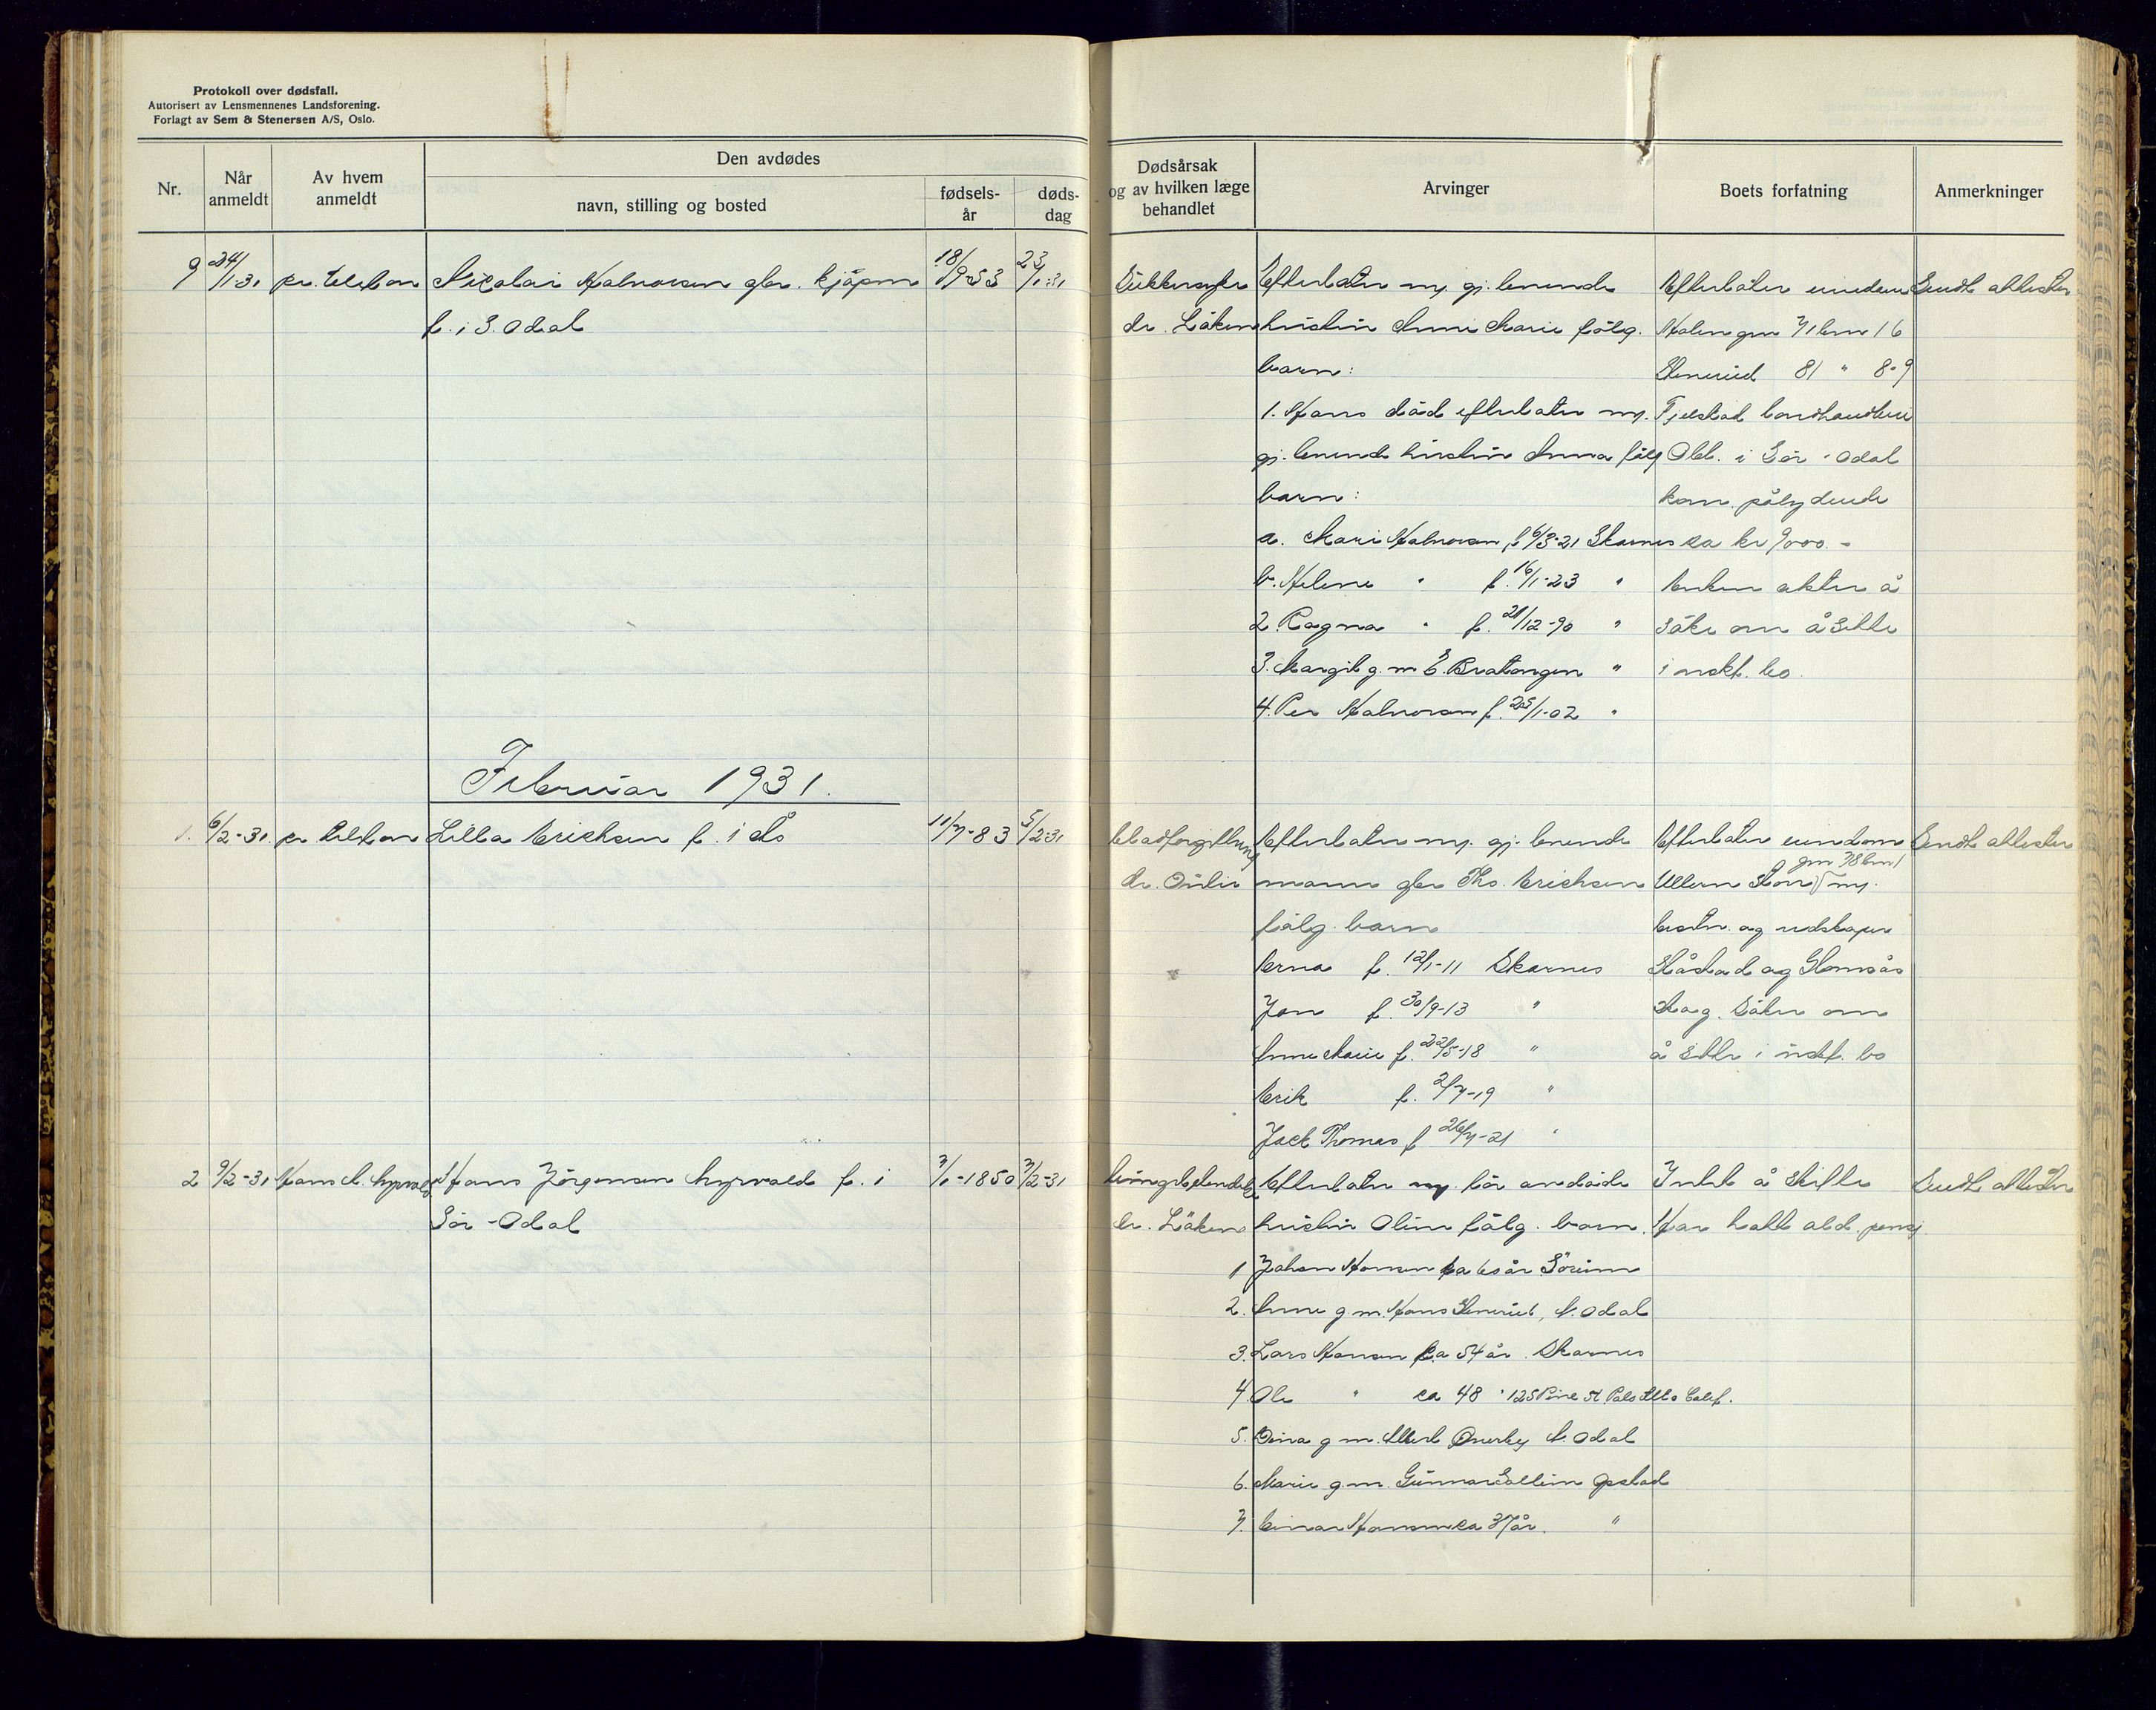 Protokoll over dødsfall.
Autorisert av Lensmennenes Landsforening.
Forlagt av Sem & Stenersen A/S, Oslo.
Nr.
Når anmeldt
Av hvem anmeldt
Den avdødes
navn, stilling og bosted
fødselsår
dødsdag
Dødsårsak og av hvilken læge behandlet
Arvinger
Boets forfatning
Anmerkninger
9 24/1-31 pr. telefon Nicolai Halvorsen gbr. kjøpm 18/9-53 23/1-31
f. i S. Odal
Sukkersyke
dr. Løken
Efterlater sig gj. levende
hustru Anne Marie følg.
barn:
1. Hans død efterlater sig
gj. levende hustru Anna følg
barn:
a. Mari Halvorsen f. 6/3-21 Skarnes
b. Helene " f. 16/1-23 "
2. Ragna " f. 21/12-90 "
3. Margit g. m E. Bratengen "
4. Per Halvorsen f. 25/1-02 "
Efterlater eiendom
gnr 71 bnr 16
Stenerud 81 " 8-9
landhandleri
Obl. i Sør-Odal
kom. pålydende
ca kr 9000.-
Enken akter å
søke om å sitte
i uskf. bo.
Sendt attester
Februar 1931.
1. 6/2-31. pr telefon Lilla Erichsen f. i Ås 11/7-83 5/2-31
Blodforgiftning
dr. Outin
Efterlater sig gj. levende
mann gbr Ths. Erichsen
følg. barn
Erna f. 12/1-11 Skarnes
Jon f. 30/9-13 "
Anne Marie f. 22/5-18 "
Erik f. 2/7-19 "
Jack Thomas f 26/7-21 "
Efterlater eiendom
gnr 78 bnr 1
Ullern Store sig
besetn. og redskaper
Slåstad og Glomsås
Skog. Søker om
å sitte i uskf. bo
Sendt attester
2 9/2-31 Hans M. Myrvold Hans Jörgensen Myrvold f. i 7/1-1850 7/2-31
Sør-Odal
Lungebetendelse
dr. Løken
Efterlater sig før avdøde
hustru Oline følg. barn.
1 Johan Hansen ca 60 år Sörum
2. Anne g. m. Hans Stenerud, N. Odal
3. Lars Hansen ca 54 år. Skarnes
4. Ole " ca 48 " 125 Pine St Palo Alto Calif.
5. Dina g m. Albert Overby N. Odal
6. Marie g. m. Gunnar Sollien Opstad
7. Einar Hansen ca 37 år. "
Intet å skifte
Har hatt ald. pensj
Sendt attester